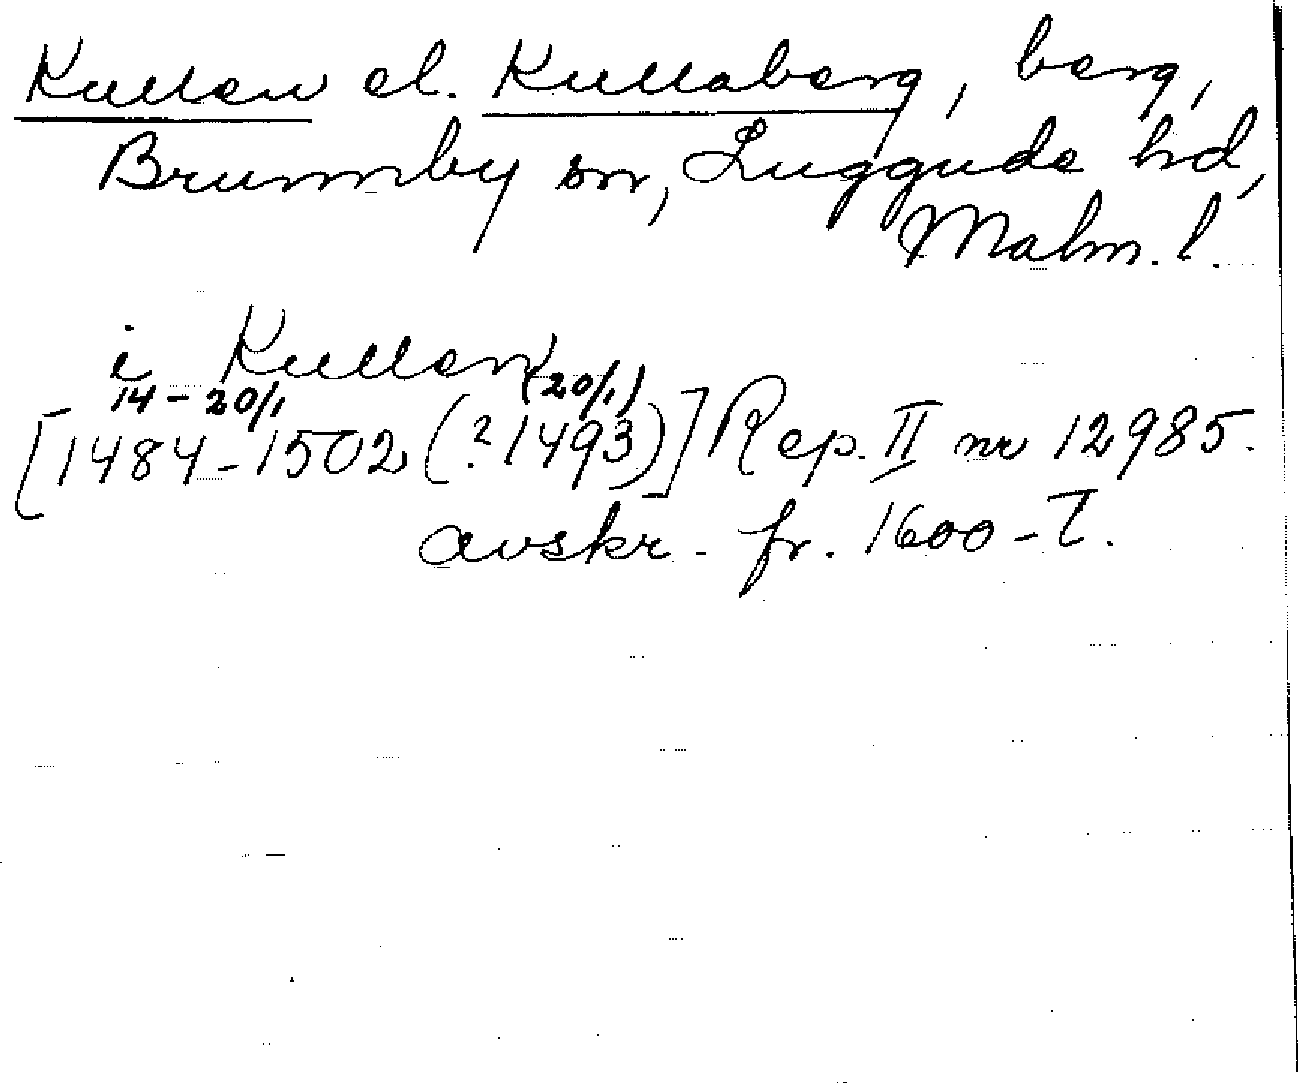 Kullen el. Kullaberg, berg,
Brunnby sn, Luggude hd,
Malm. l.
i Kullen
14-20/1 (20/1)
[1484-1502 (? 1493)] Rep. II nr 12985.
avskr. fr. 1600-T.